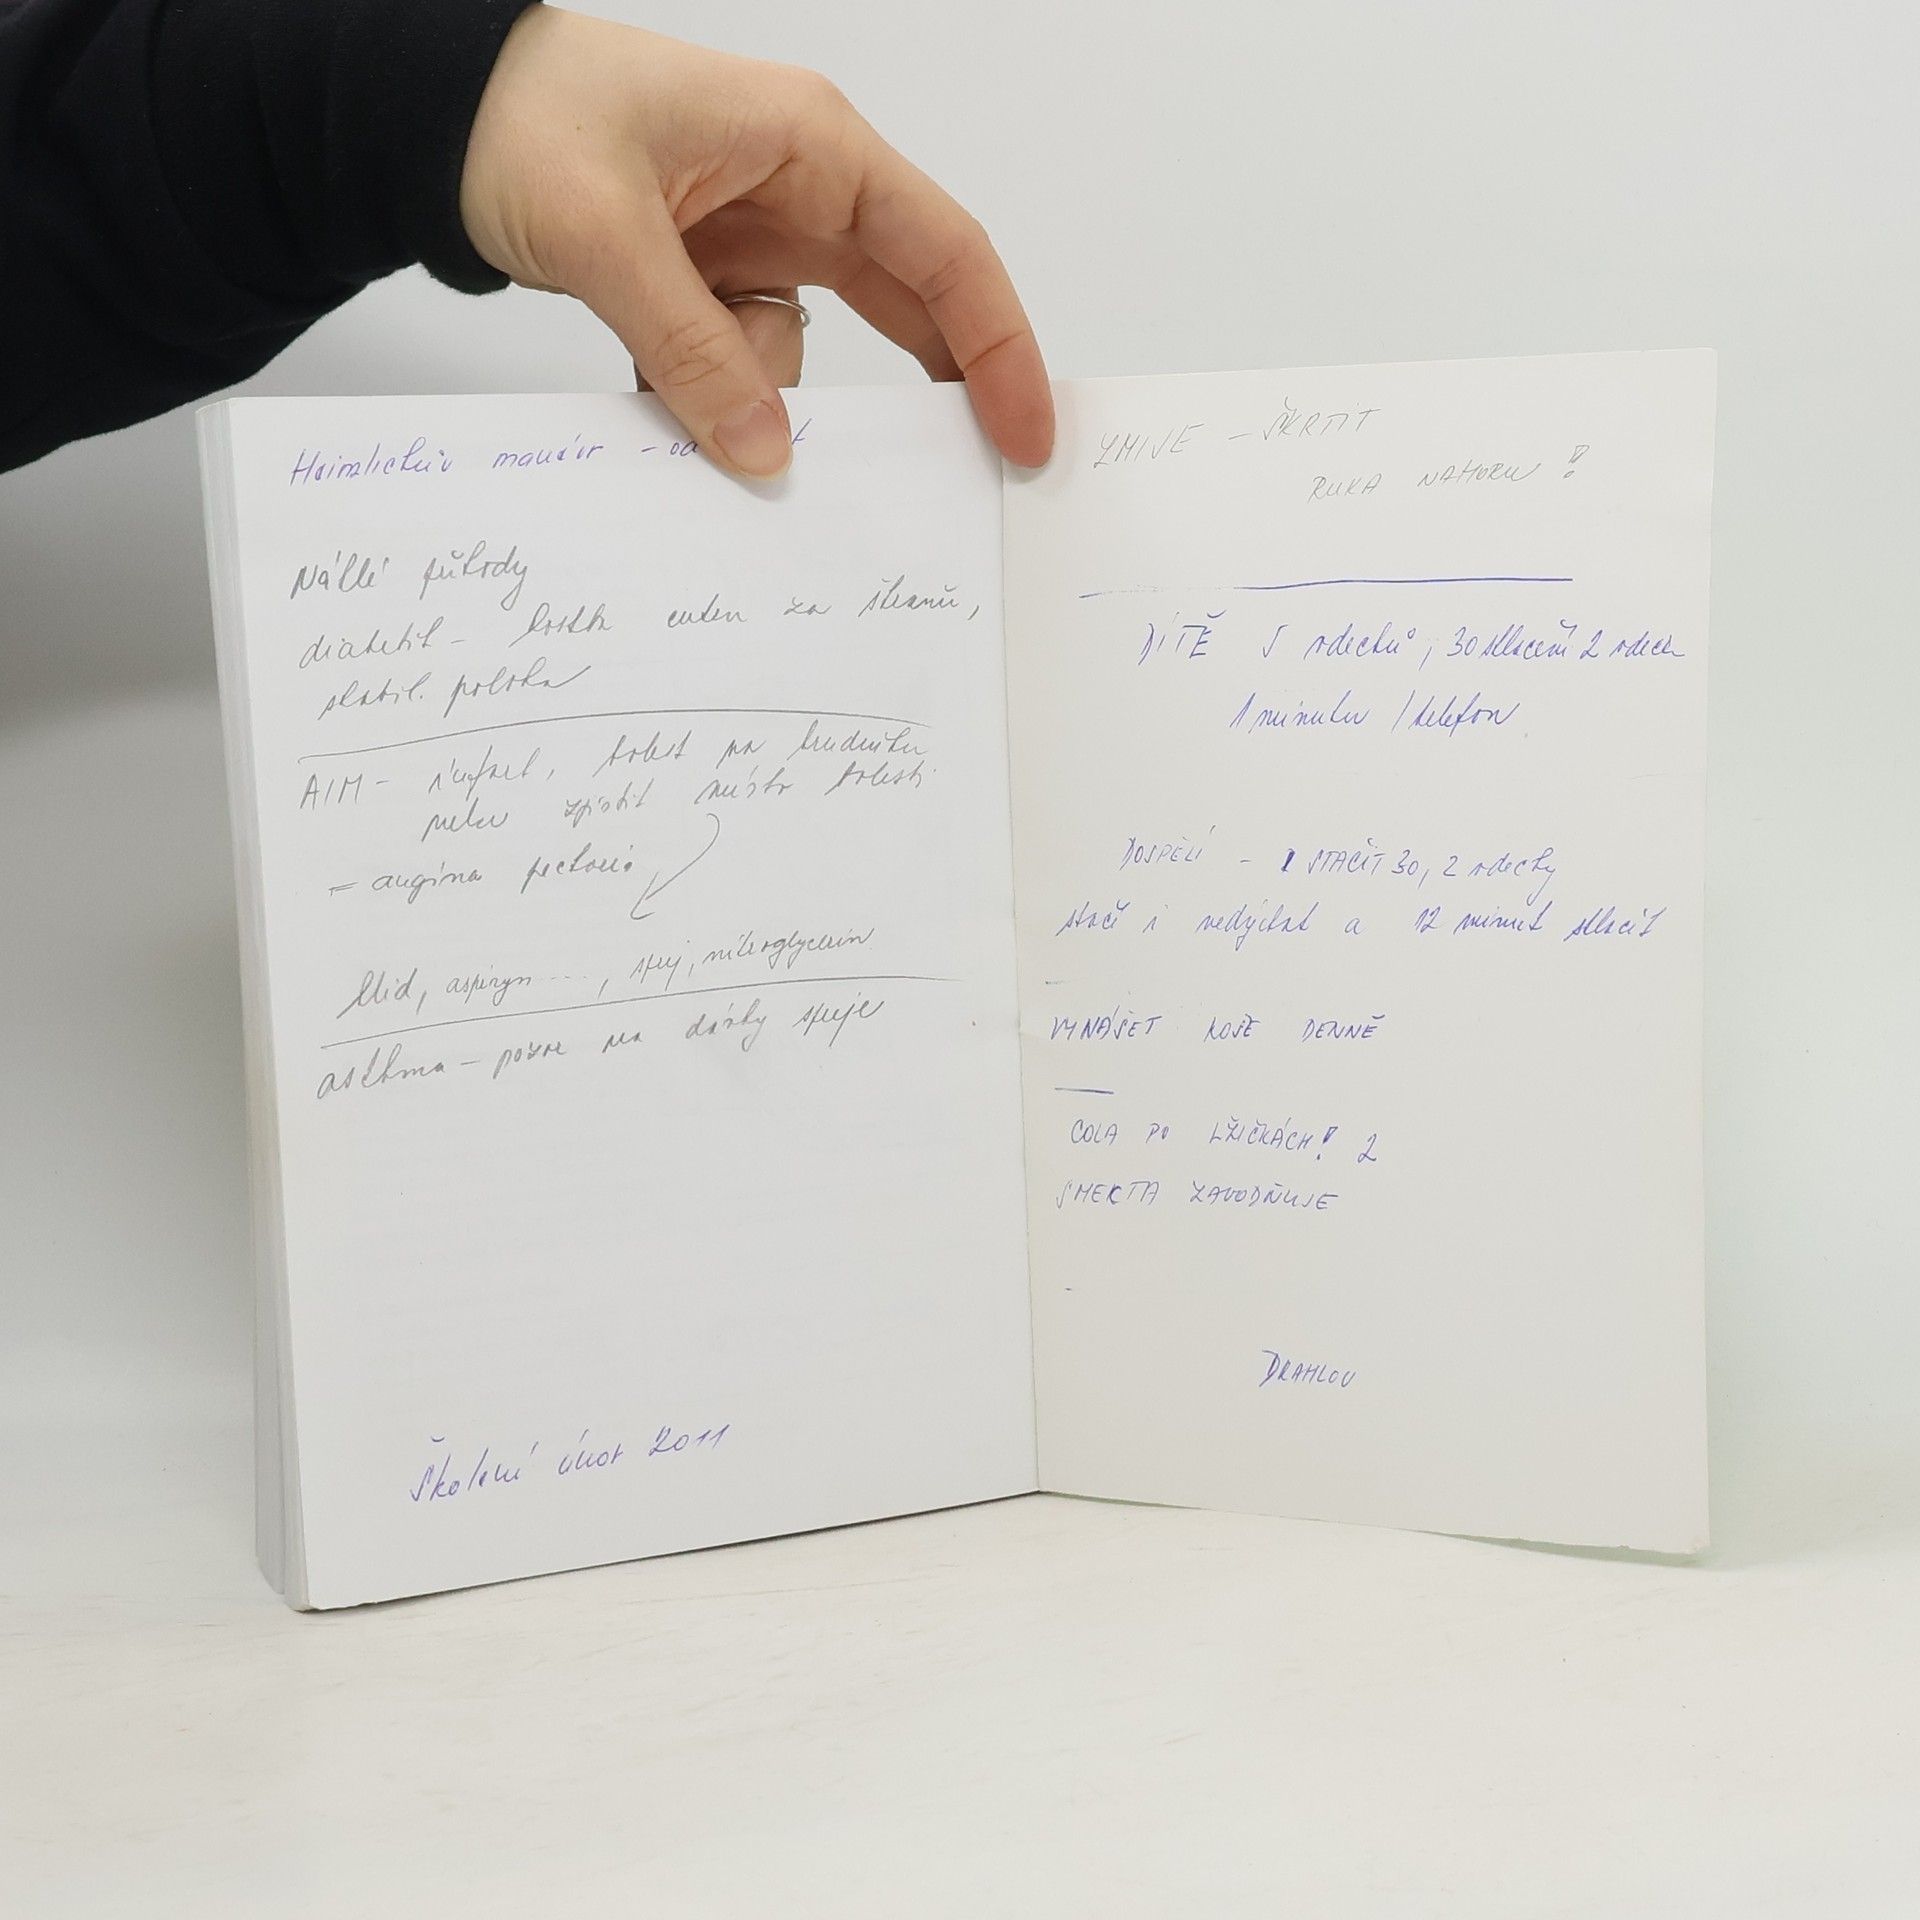 Heimlichův manévr -
Náhlé příhody
diabetik - kostka cukru za
stabil. poloha
AIM - infarkt, bolest na hrudníku
nebo zjistit místo bolesti
= angina pectoris
klid, aspiryn ..., sprej, nitroglycerin
asthma - pozor na dávky spreje
Školení únor 2011
ZMIJE - ŠKRTIT
RUKA NAHORU !
DÍTĚ 5 vdechů, 30 stlačení 2 vdechy
1 minutu / telefon
DOSPĚLÍ - STAČIT 30, 2 vdechy
stačí i nedýchat a 12 minut stlačit
VYNÁŠET KOŠE DENNĚ
COLA PO LŽIČKÁCH! 2
SMEKTA ZAVODŇUJE
DRAHLOV